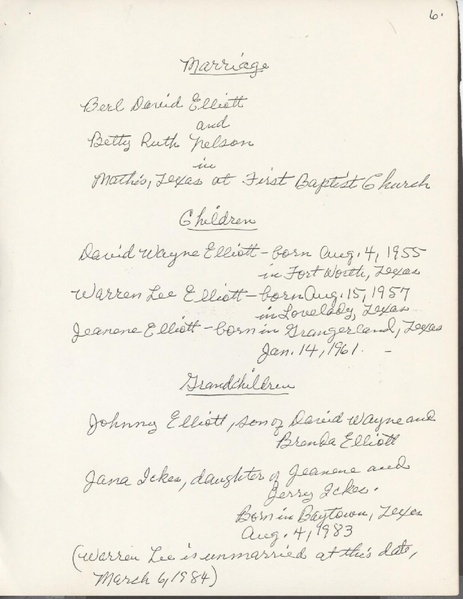 6.
Marriage
Berl David Elliott
and
Betty Ruth Nelson
in
Mathis, Texas at First Baptist Church
Children
David Wayne Elliott - born Aug. 4, 1955
in Fort Worth, Texas
Warren Lee Elliott - born Aug. 15, 1957
in Lovelady, Texas
Jeanene Elliott - born in Grangerland, Texas
Jan. 14, 1961. -
Grandchildren
Johnny Elliott, son of David Wayne and
Brenda Elliott
Jana Ickes, daughter of Jeanene and
Jerry Ickes.
Born in Baytown, Texas
Aug. 4, 1983
(Warren Lee is unmarried at this date,
March 6, 1984)